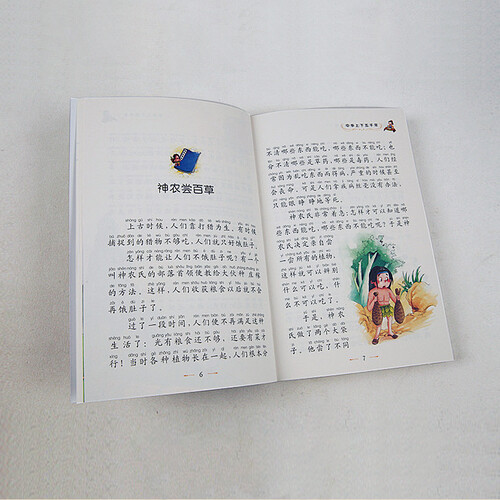 神农尝百草
上古时候，人们靠打猎为生。有时候
捕捉到的猎物不够吃，人们就只好饿肚子。
怎样才能让人们不饿肚子呢？有一个
叫神农氏的部落首领便教给大伙种庄稼
的方法。这样，人们收获粮食以后就不会
再饿肚子了。
过了一段时间，人们便不再满足这种
生活了：光有粮食还不够，还要有菜才
行！当时各种植物长在一起，人们根本分
6
中华上下五千年
不清哪些东西能吃，哪些东西不能吃；也
分不清哪些是草药，哪些是毒药。人们经
常因为乱吃东西而得病，严重的时候甚至
会丧命。可是人们拿疾病丝毫没有办法，
只能眼睁睁地等死。
神农氏非常着急：怎样才可以知道哪
些东西能吃，哪些东西不能吃呢？于是神
农氏决定亲自尝
一尝所有的植物，
这样就可以辨别
什么可以吃，什
么不可以吃了。
于是，神农
氏做了两个大袋
子。他尝了不同
7